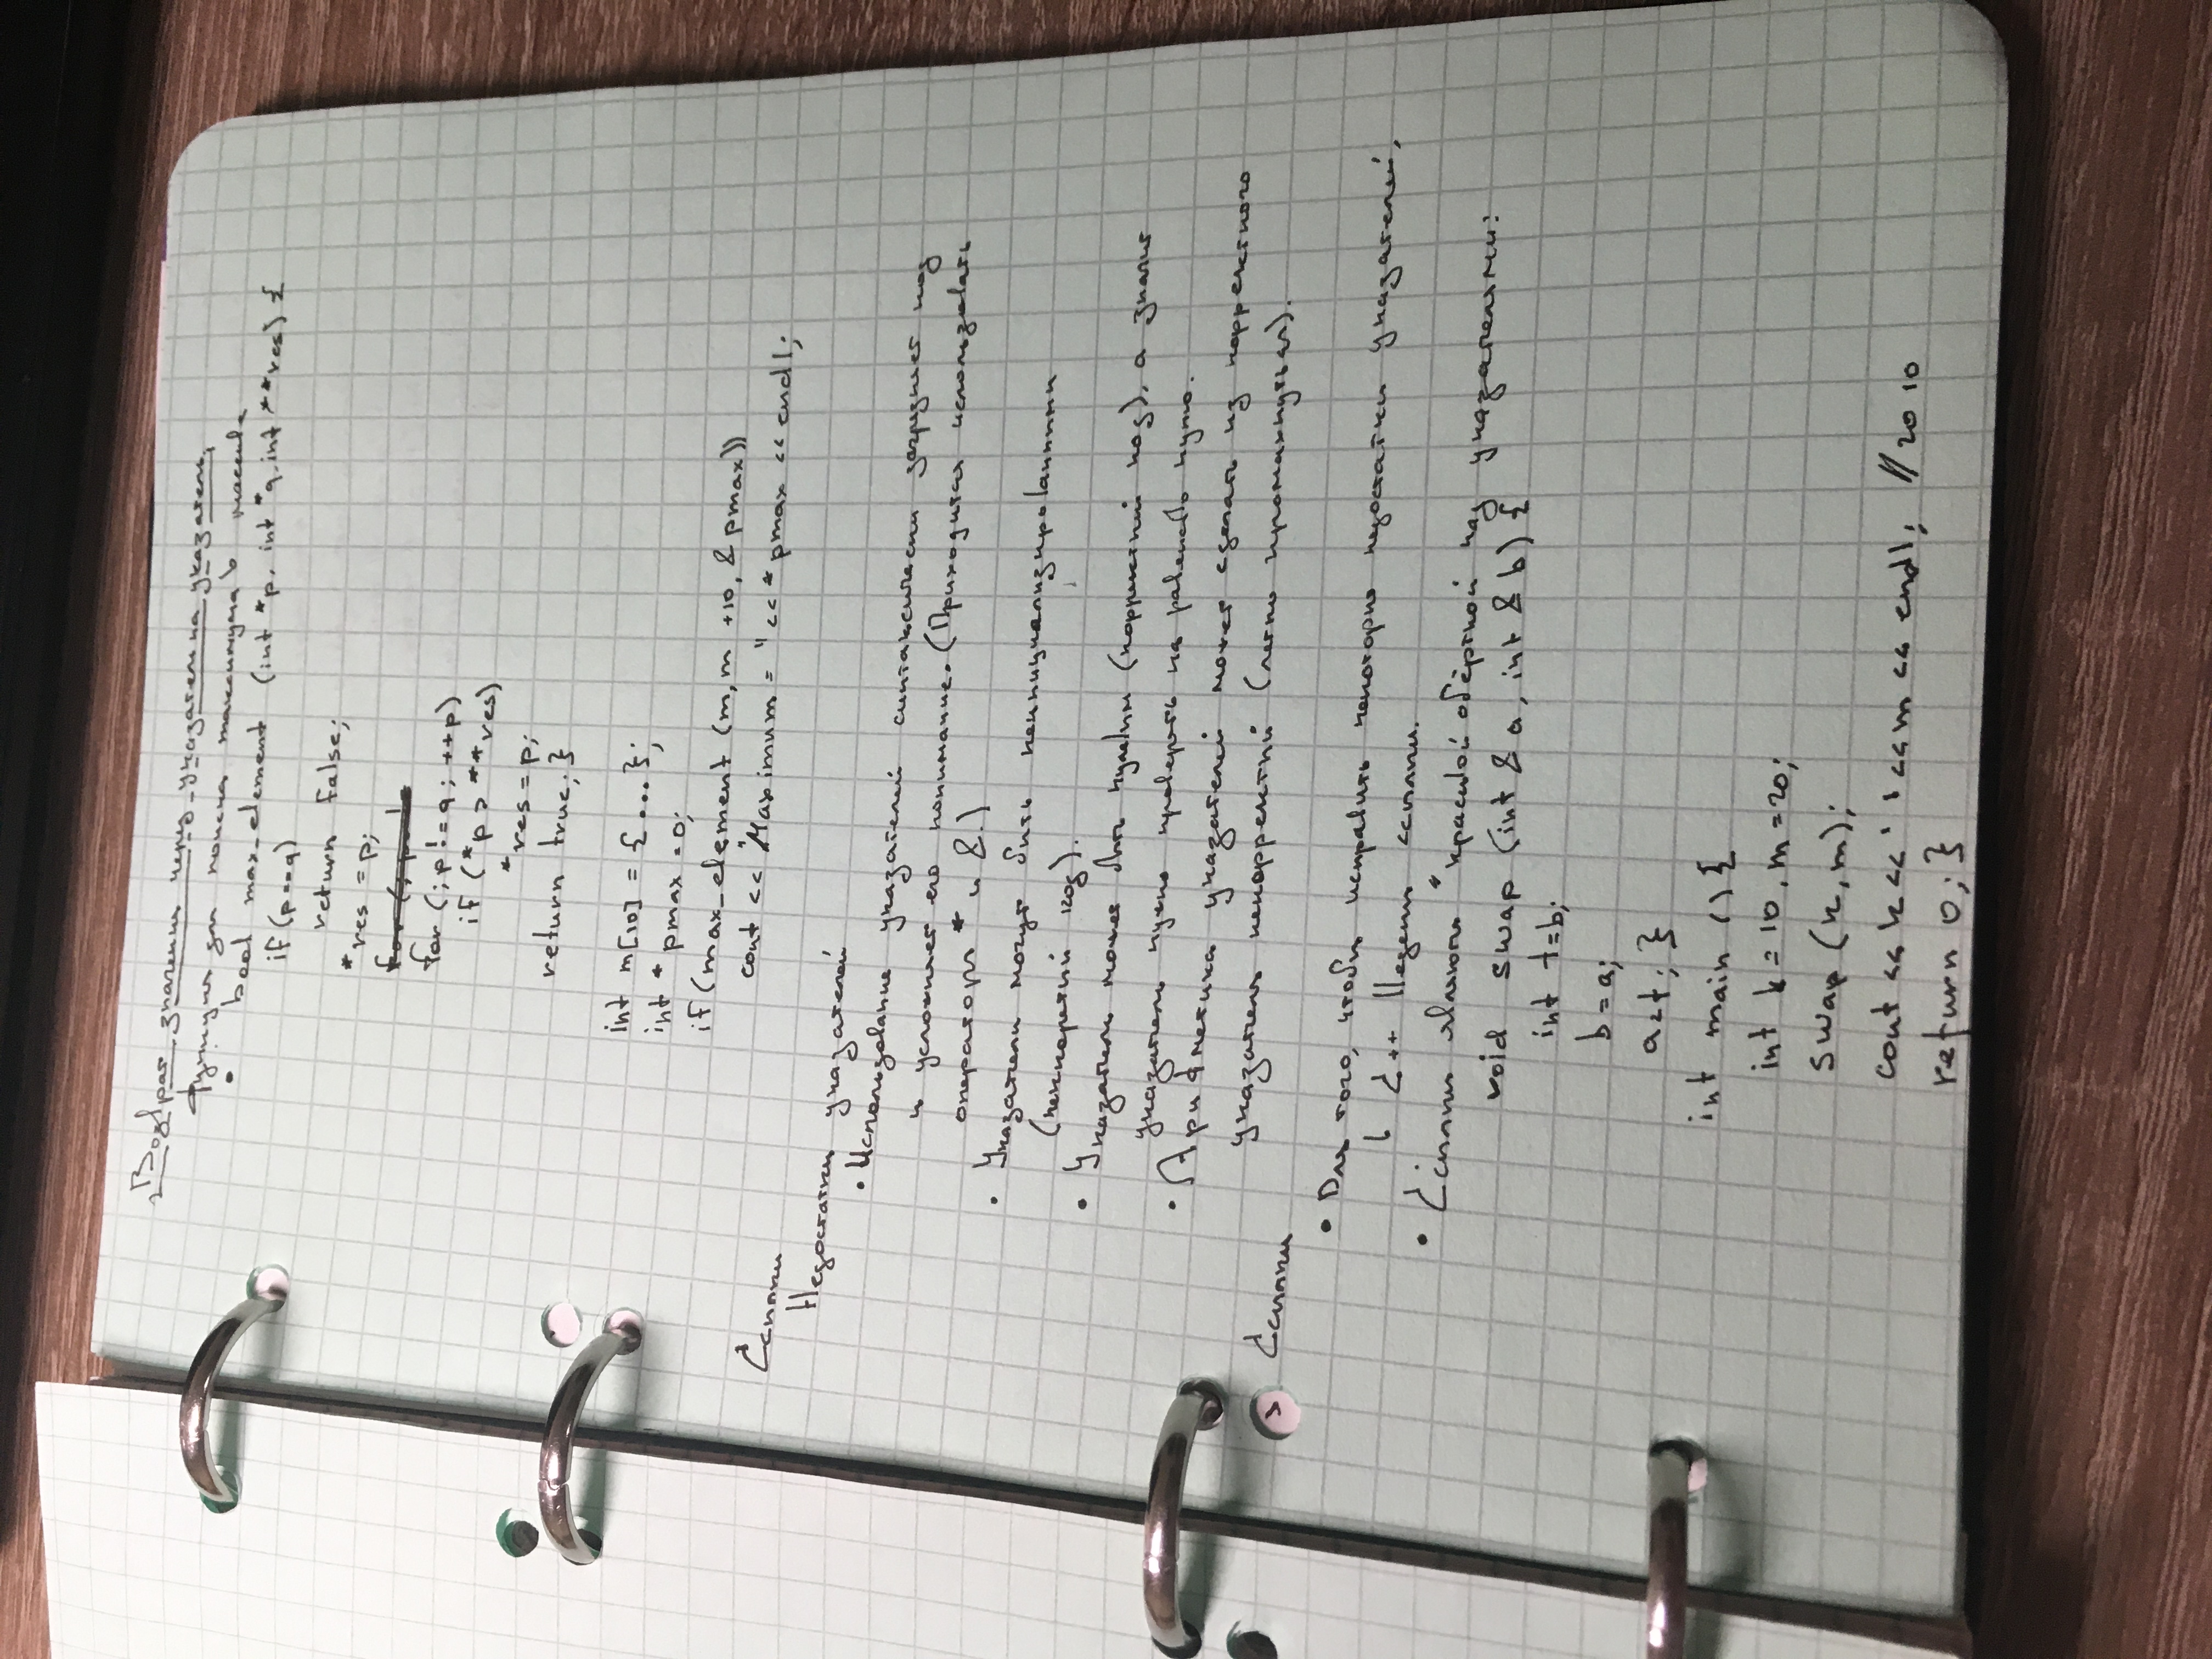 Возврат значения через указатель на указатель,
Функция для поиска максимума в массиве
• bool max_element (int *p, int *q, int **res) {
if (p==q)
return false;
*res = p;
for (; p!=q; ++p)
if (*p > **res)
*res = p;
return true; }
int m[10] = {...};
int * pmax = 0;
if (max_element (m, m +10, & pmax))
cout << "Maximum = " << * pmax << endl;
Ссылки
Недостатки указателей
• Использование указателей синтаксически загрязняет код
и усложняет его понимание. (Приходится использовать
операторы * и &.)
• Указатели могут быть неинициализированными
(некорретный код).
• Указатель может быть нулевым (корректный код), а значит
указатель нужно проверять на равенство нулю.
• Арифметика указателей может сделать из корректного
указателя некорректный (легко промахнуться).
Ссылки
• Для того, чтобы исправить некоторые недостатки указателей,
в C++ введены ссылки.
• Ссылки являются "красивой обёрткой над указателями:
void swap (int & a, int & b) {
int t=b;
b = a;
a=t; }
int main () {
int k = 10, m = 20;
swap (k, m);
cout << k << ' ' << m << endl; // 20 10
return 0; }